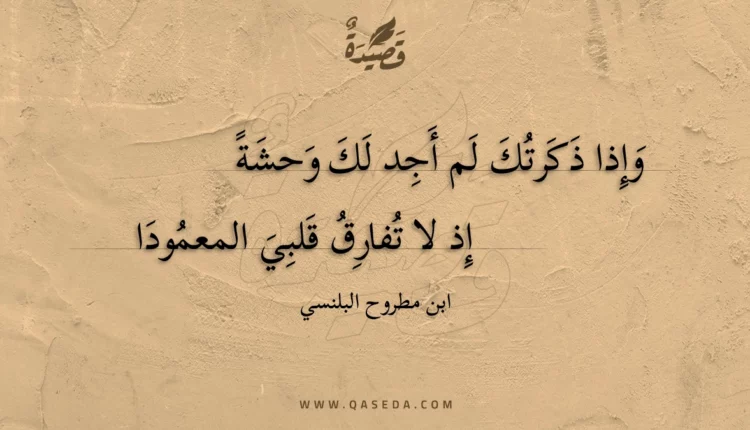 قَصِيْدَةٌ
وَإِذا ذَكَرتُكَ لَم أَجِد لَكَ وَحشَةً
إِذ لا تُفارِقُ قَلبِيَ المعمُودَا
ابن مطروح البلنسي
WWW.QASEDA.COM